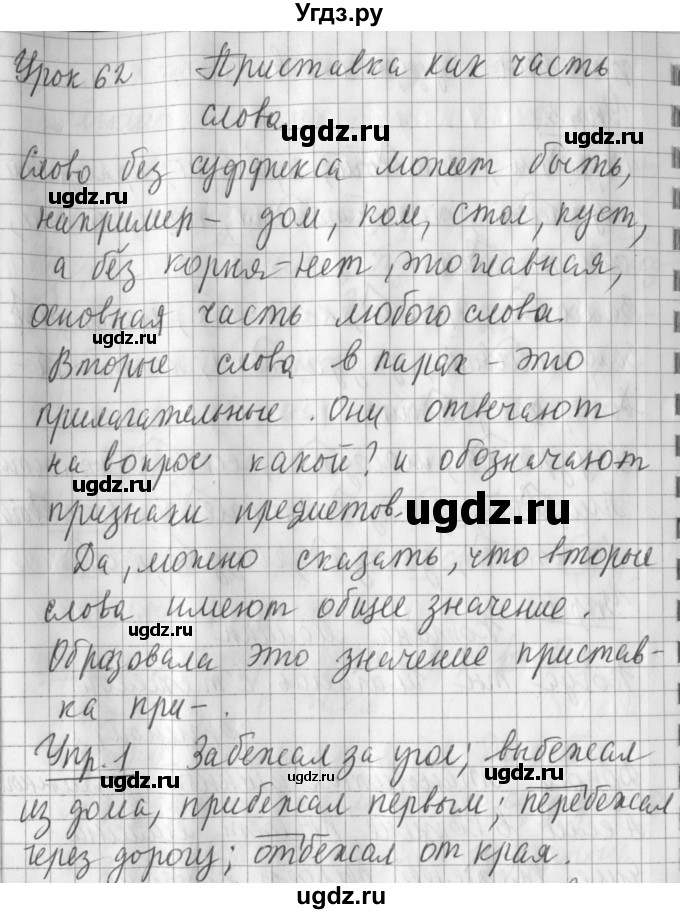 Угдз.ру
Урок 62 Приставка как часть
слова.
ugdz.ru
Слово без суффикса может быть,
ugdz.ru
например – дом, ком, стол, пуст,
а без корня – нет, это главная,
основная часть любого слова.
ugdz.ru
Вторые слова в парах – это
прилагательные. Они отвечают
на вопрос какой? и обозначают
ugdz.ru
признаки предметов.
ugdz.ru
Да, можно сказать, что вторые
слова имеют общее значение.
ugdz.ru
Образовала это значение пристав-
ка при-.
Упр. 1 Забежал за угол; выбежал
ugdz.ru ugdz.ru
из дома, прибежал первым; перебежал
через дорогу; отбежал от края.
ugdz.ru
ugdz.ru